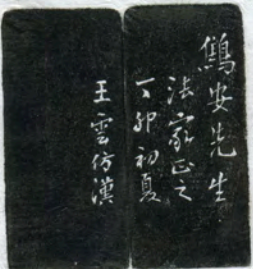 鷦安先生
法家正之
丁卯初夏
王雲仿漢